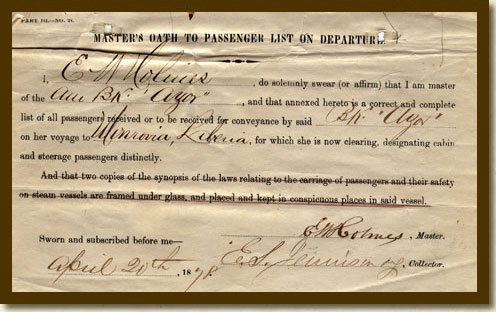 PART III.—NO. 28.
MASTER'S OATH TO PASSENGER LIST ON DEPARTURE.
I, E W Holmes, do solemnly swear (or affirm) that I am master
of the Am Bk "Azor", and that annexed hereto is a correct and complete
list of all passengers received or to be received for conveyance by said Bk "Azor"
on her voyage to Monrovia, Liberia, for which she is now clearing, designating cabin
and steerage passengers distinctly.
And that two copies of the synopsis of the laws relating to the carriage of passengers and their safety
on steam vessels are framed under glass, and placed and kept in conspicuous places in said vessel.
E W Holmes, Master.
Sworn and subscribed before me—
April 20th, 1878. E. S. Jennison, Collector.